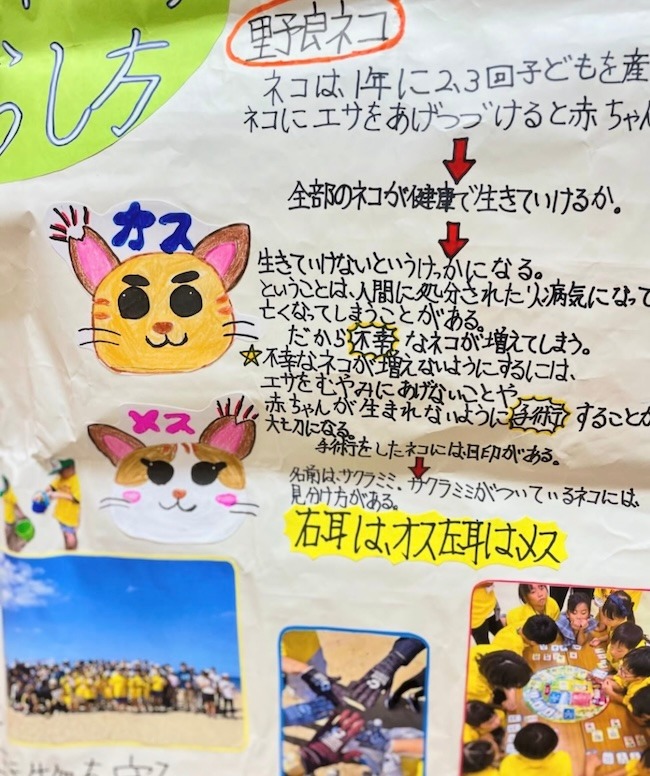 らし方
野良ネコ
ネコは、1年に2、3回子どもを産
ネコにエサをあげつづけると赤ちゃん
全部のネコが健康で生きていけるか。
オス
生きていけないというけっかになる。
ということは、人間に処分されたり、病気になって
亡くなってしまうことがある。
だから不幸なネコが増えてしまう。
☆不幸なネコが増えないようにするには、
エサをむやみにあげないことや、
赤ちゃんが生まれないように手術することが
大切になる。
メス
手術をしたネコには、目印がある。
名前は、サクラミミ、サクラミミがついているネコには、
見分け方がある。
右耳は、オス左耳は、メス